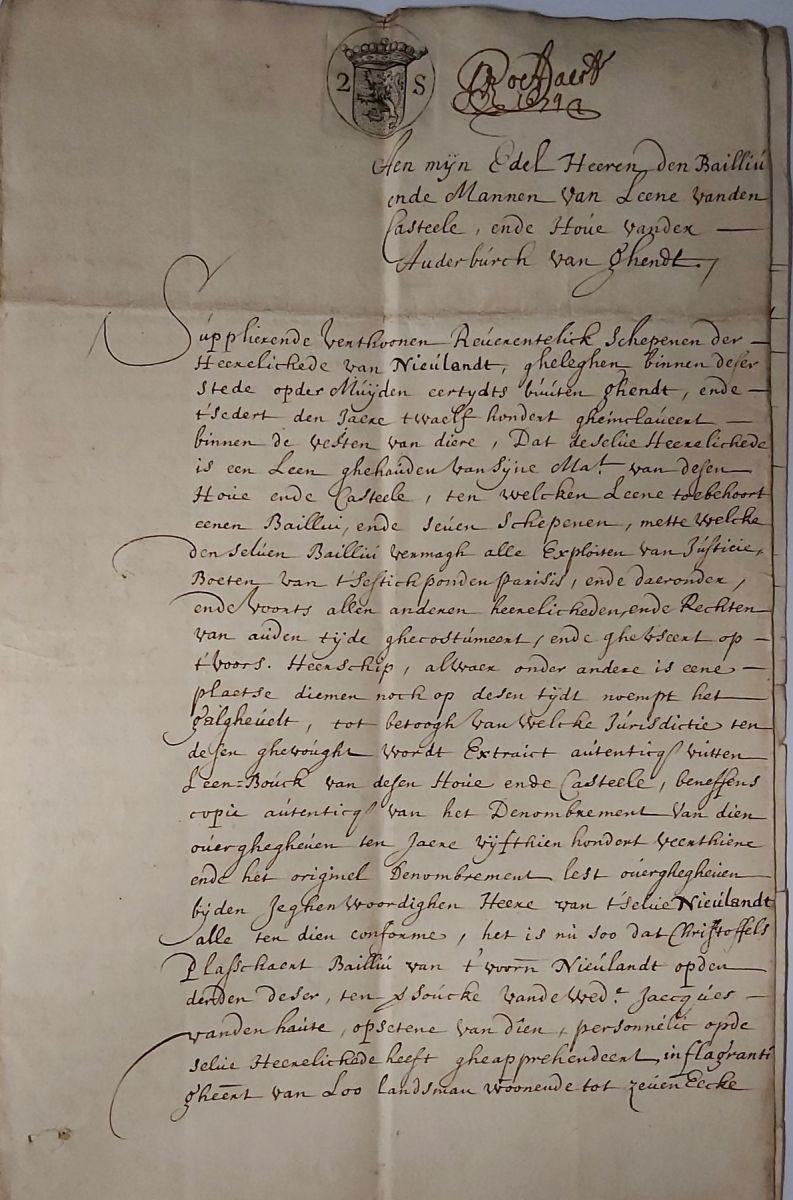 2 S
Aen mijn Edel Heeren den Bailliú
ende Mannen van Leene vanden
Casteele, ende Hoúe vander —
Auderbúrch van Ghendt.
Súpplierende verthoonen Reúerentelick Schepenen der —
Heerelichede van Nieúlandt, gheleghen binnen deser
stede opder Múÿden eertÿdts buúten Ghendt, ende —
t'sedert den Jaere twaelf hondert gheinclaúeert —
binnen de vesten van diere, Dat deselúe Heerelichede
is een Leen ghehauden van Sÿne Mat. van desen
Hoúe ende Casteele, ten welcken Leene toebehoort
eenen Baillui, ende seúen Schepenen, mette welcke
den selúen Bailliú vermagh alle Exploiten van Jústicie,
Boeten van t'sestich ponden parisis, ende daeronder,
ende voorts allen anderen heerelicheden, ende Rechten
van aúden tÿde ghecostúmeert, ende gheuseert op —
t'voors. Heerschip, alwaer onder andere is eene —
plaetse diemen noch op desen tÿdt noempt het
Galgheúelt, tot betoogh van welcke Júrisdictie ten
desen ghevoúght wordt Extraict aútenticq wútten
Leen=Boúck van desen Hoúe ende Casteele, beneffens
copie aútenticq van het Denombrement van dien
oúerghegheúen ten Jaere vÿfthien hondert veerthiene
ende het originel Denombrement lest oúerghegheúen
bÿden Jeghenwoordighen Heere van t'selúe Nieúlandt
alle ten dien conforme, het is nú soo dat Christoffels
Plasschaert Bailliú van t'voorn Nieúlandt opden
derden deser, ten versoúcke vande Wed.e Jaecqúes —
vanden haúte, opsetene van dien, personnelic opde
selúe Heerelichede heeft gheapprehendeert in flagranti
Gheert van Loo landsman woonende tot zeúen Eecke